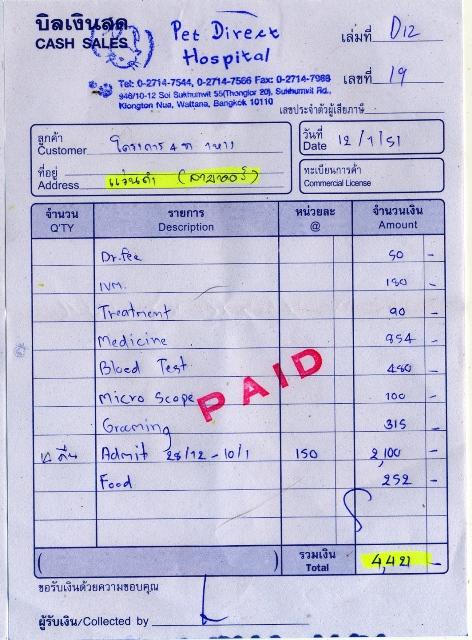 บิลเงินสด
CASH SALES
Pet Direct
Hospital
Tel: 0-2714-7544, 0-2714-7566 Fax: 0-2714-7988
946/10-12 Soi Sukhumvit 55(Thonglor 20), Sukhumvit Rd.,
Klongton Nua, Wattana, Bangkok 10110
เล่มที่ D12
เลขที่ 19
เลขประจำตัวผู้เสียภาษี
ลูกค้า
Customer โครงการ 4 ขา
ที่อยู่
Address
วันที่
Date 12/1/51
ทะเบียนการค้า
Commercial License
จำนวน รายการ หน่วยละ จำนวนเงิน
Q'TY Description @ Amount
Dr.fee 50 -
IVM. 150 -
Treatment 90 -
Medicine 954 -
Blood Test 480 -
Micro Scope 100 -
Grooming 315 -
Admit 28/12 - 10/1 150 2,100 -
Food 252 -
PAID
รวมเงิน
Total 4,421 -
ขอรับเงินด้วยความขอบคุณ
ผู้รับเงิน/Collected by